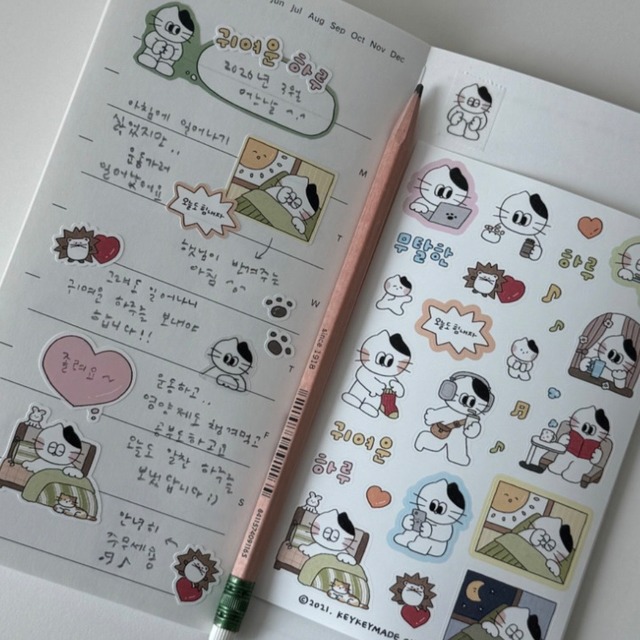 Jun Jul Aug Sep Oct Nov Dec
귀여운 하루
아침에 일어나기
싫었지만..
일어났어요
M
오늘도 힘내자!
T
햇님이 반겨주는
아침 ^.^
W
그래도 일어나니
귀여운 하루를 보내야
합니다!!
T
졸려요~
운동하고..
영양제도 챙겨먹고
F
공부도 하고요
오늘도 알찬 하루를
보냈답니다 :)
S
안녕히
주무세요
since 1918
무탈한
하루
오늘도 힘내자!
귀여운
하루
©2021. KEYKEYMADE